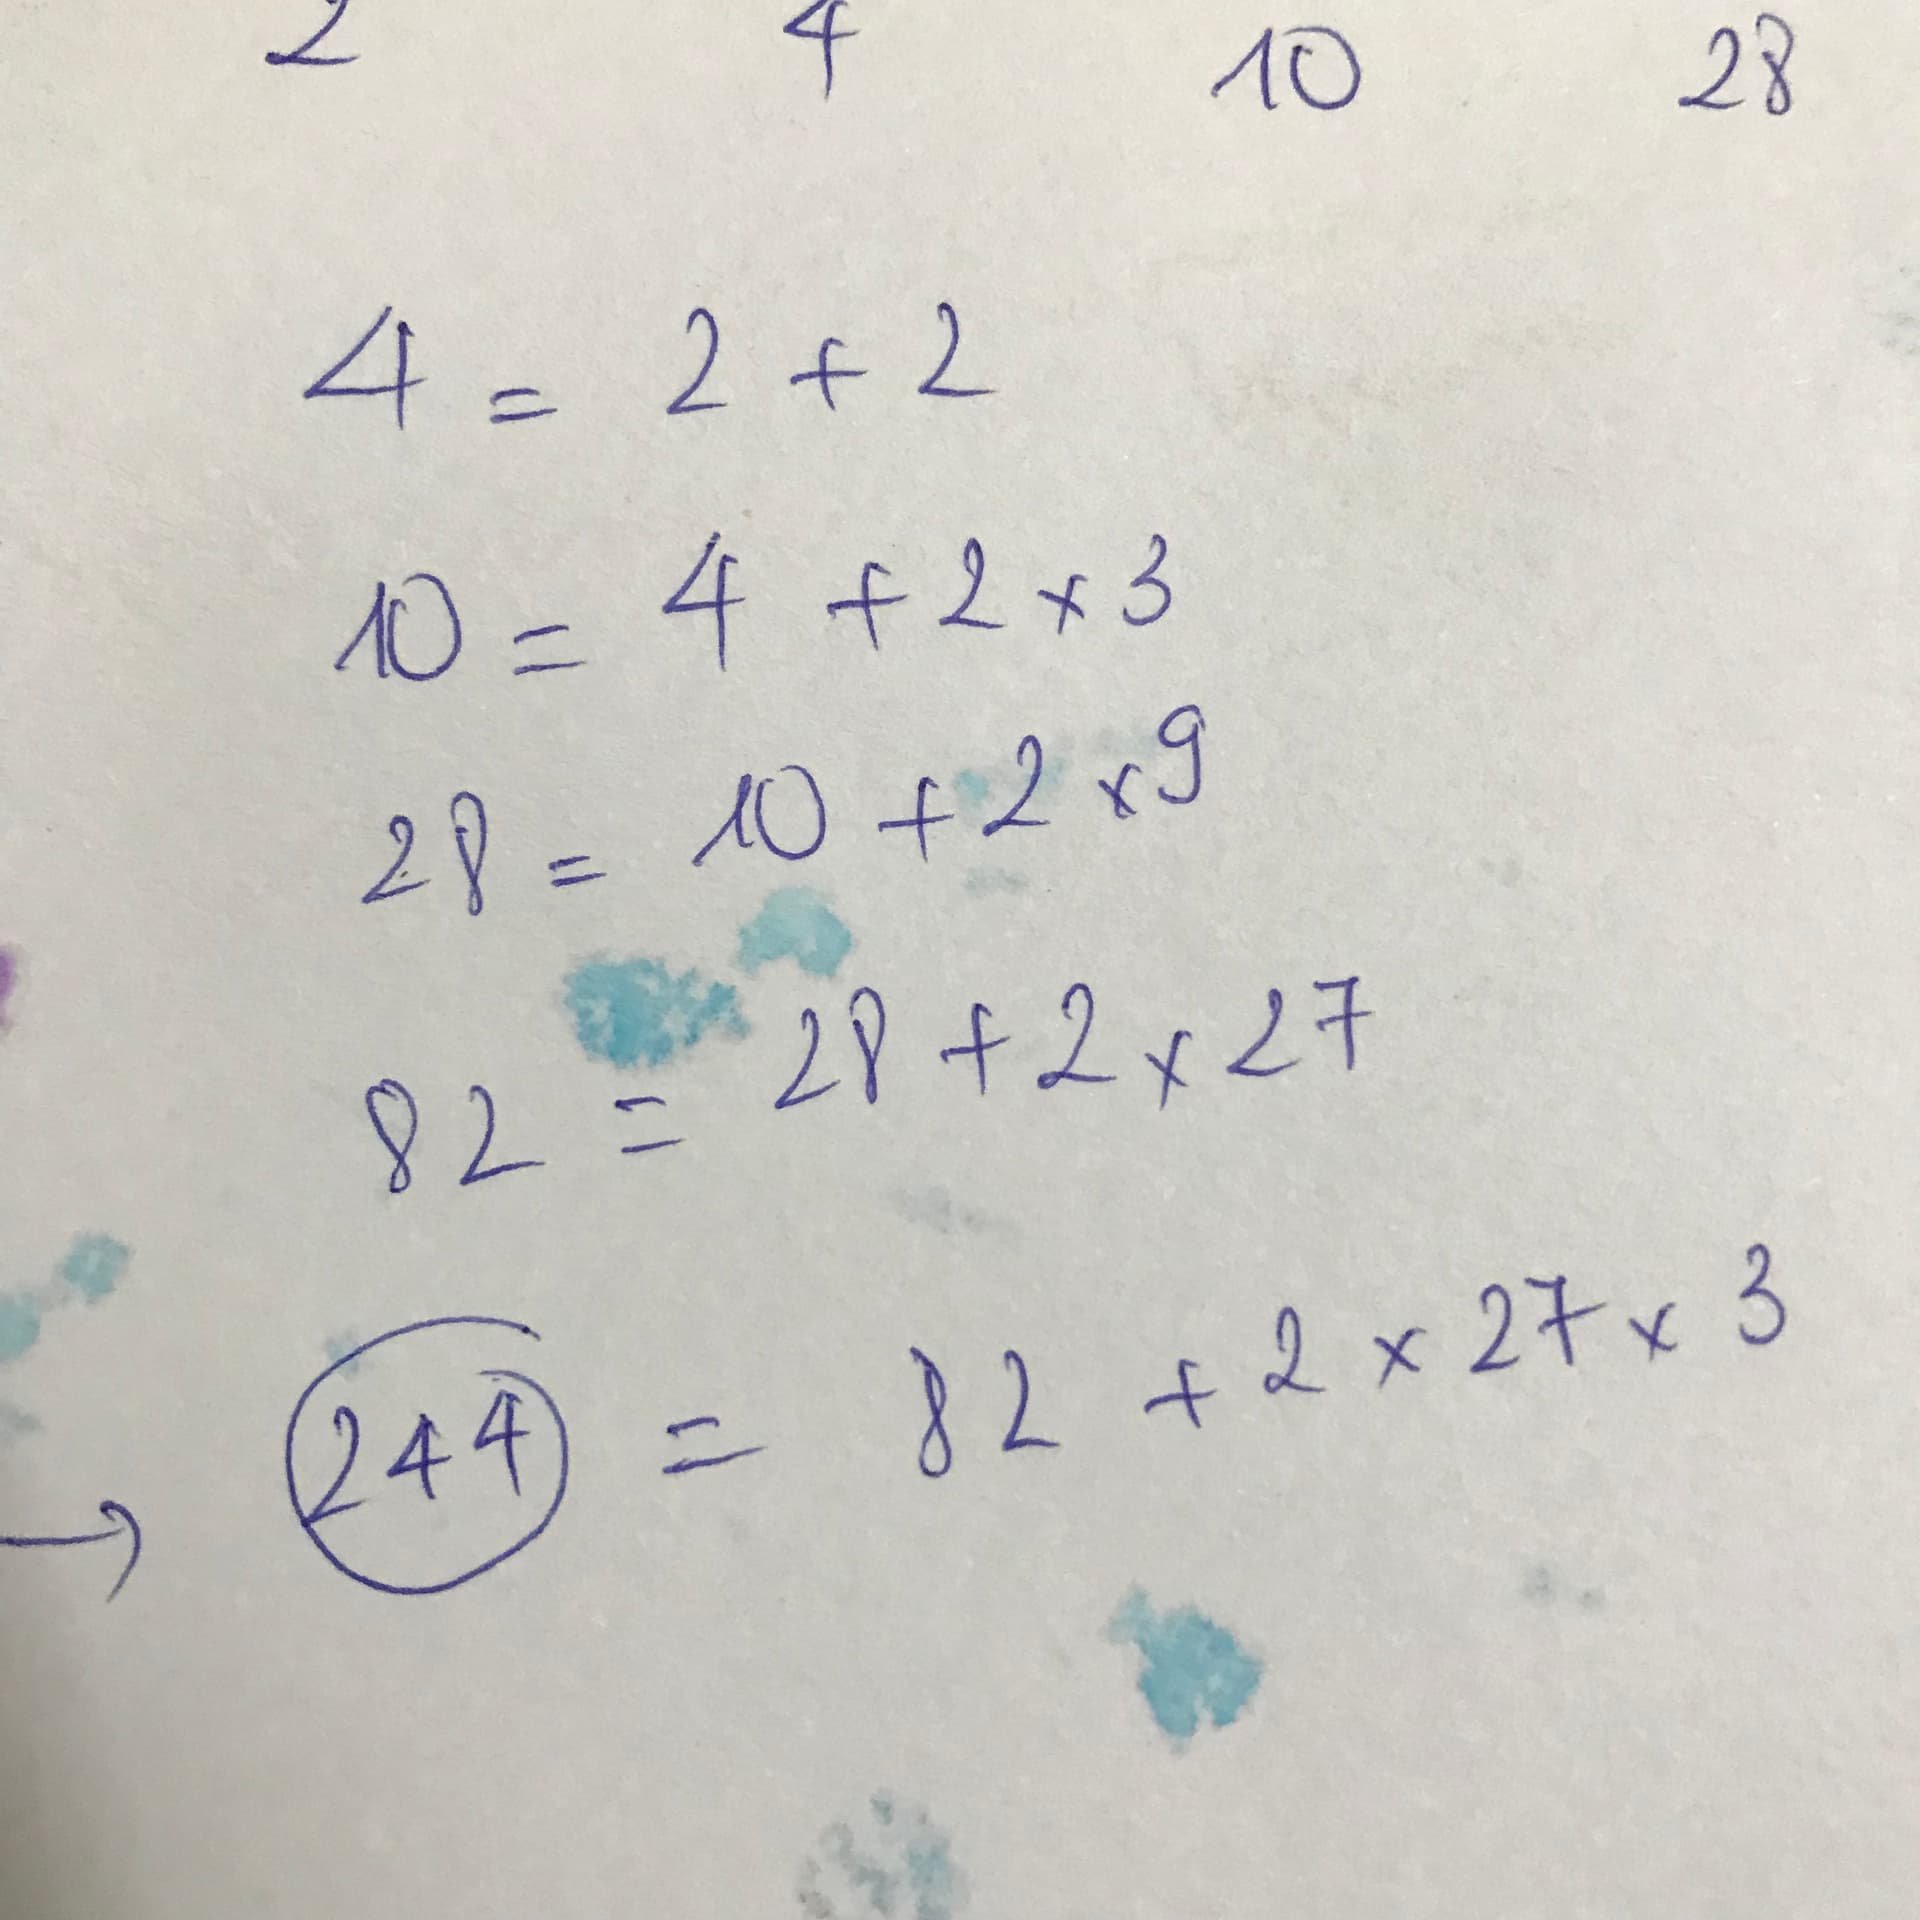 2 4 10 28
4 = 2 + 2
10 = 4 + 2 x 3
28 = 10 + 2 x 9
82 = 28 + 2 x 27
→ 244 = 82 + 2 x 27 x 3